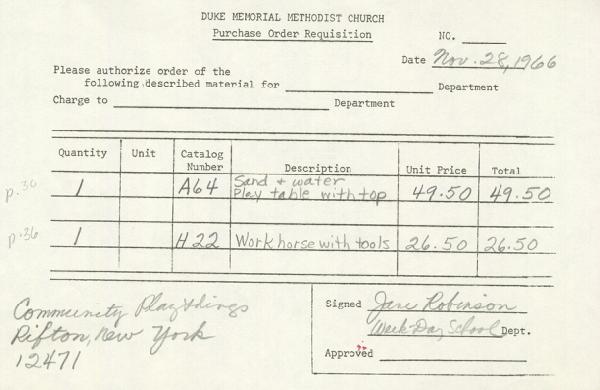 DUKE MEMORIAL METHODIST CHURCH
Purchase Order Requisition
NC.
Date Nov. 28, 1966
Please authorize order of the
following described material for Department
Charge to Department
Quantity Unit Catalog Number Description Unit Price Total
p.36 1 A64 Sand & water Play table with top 49.50 49.50
p.36 1 H22 Workhorse with tools 26.50 26.50
Community Playthings
Rifton, New York
12471
Signed Jane Robinson
Week-Day School Dept.
Approved